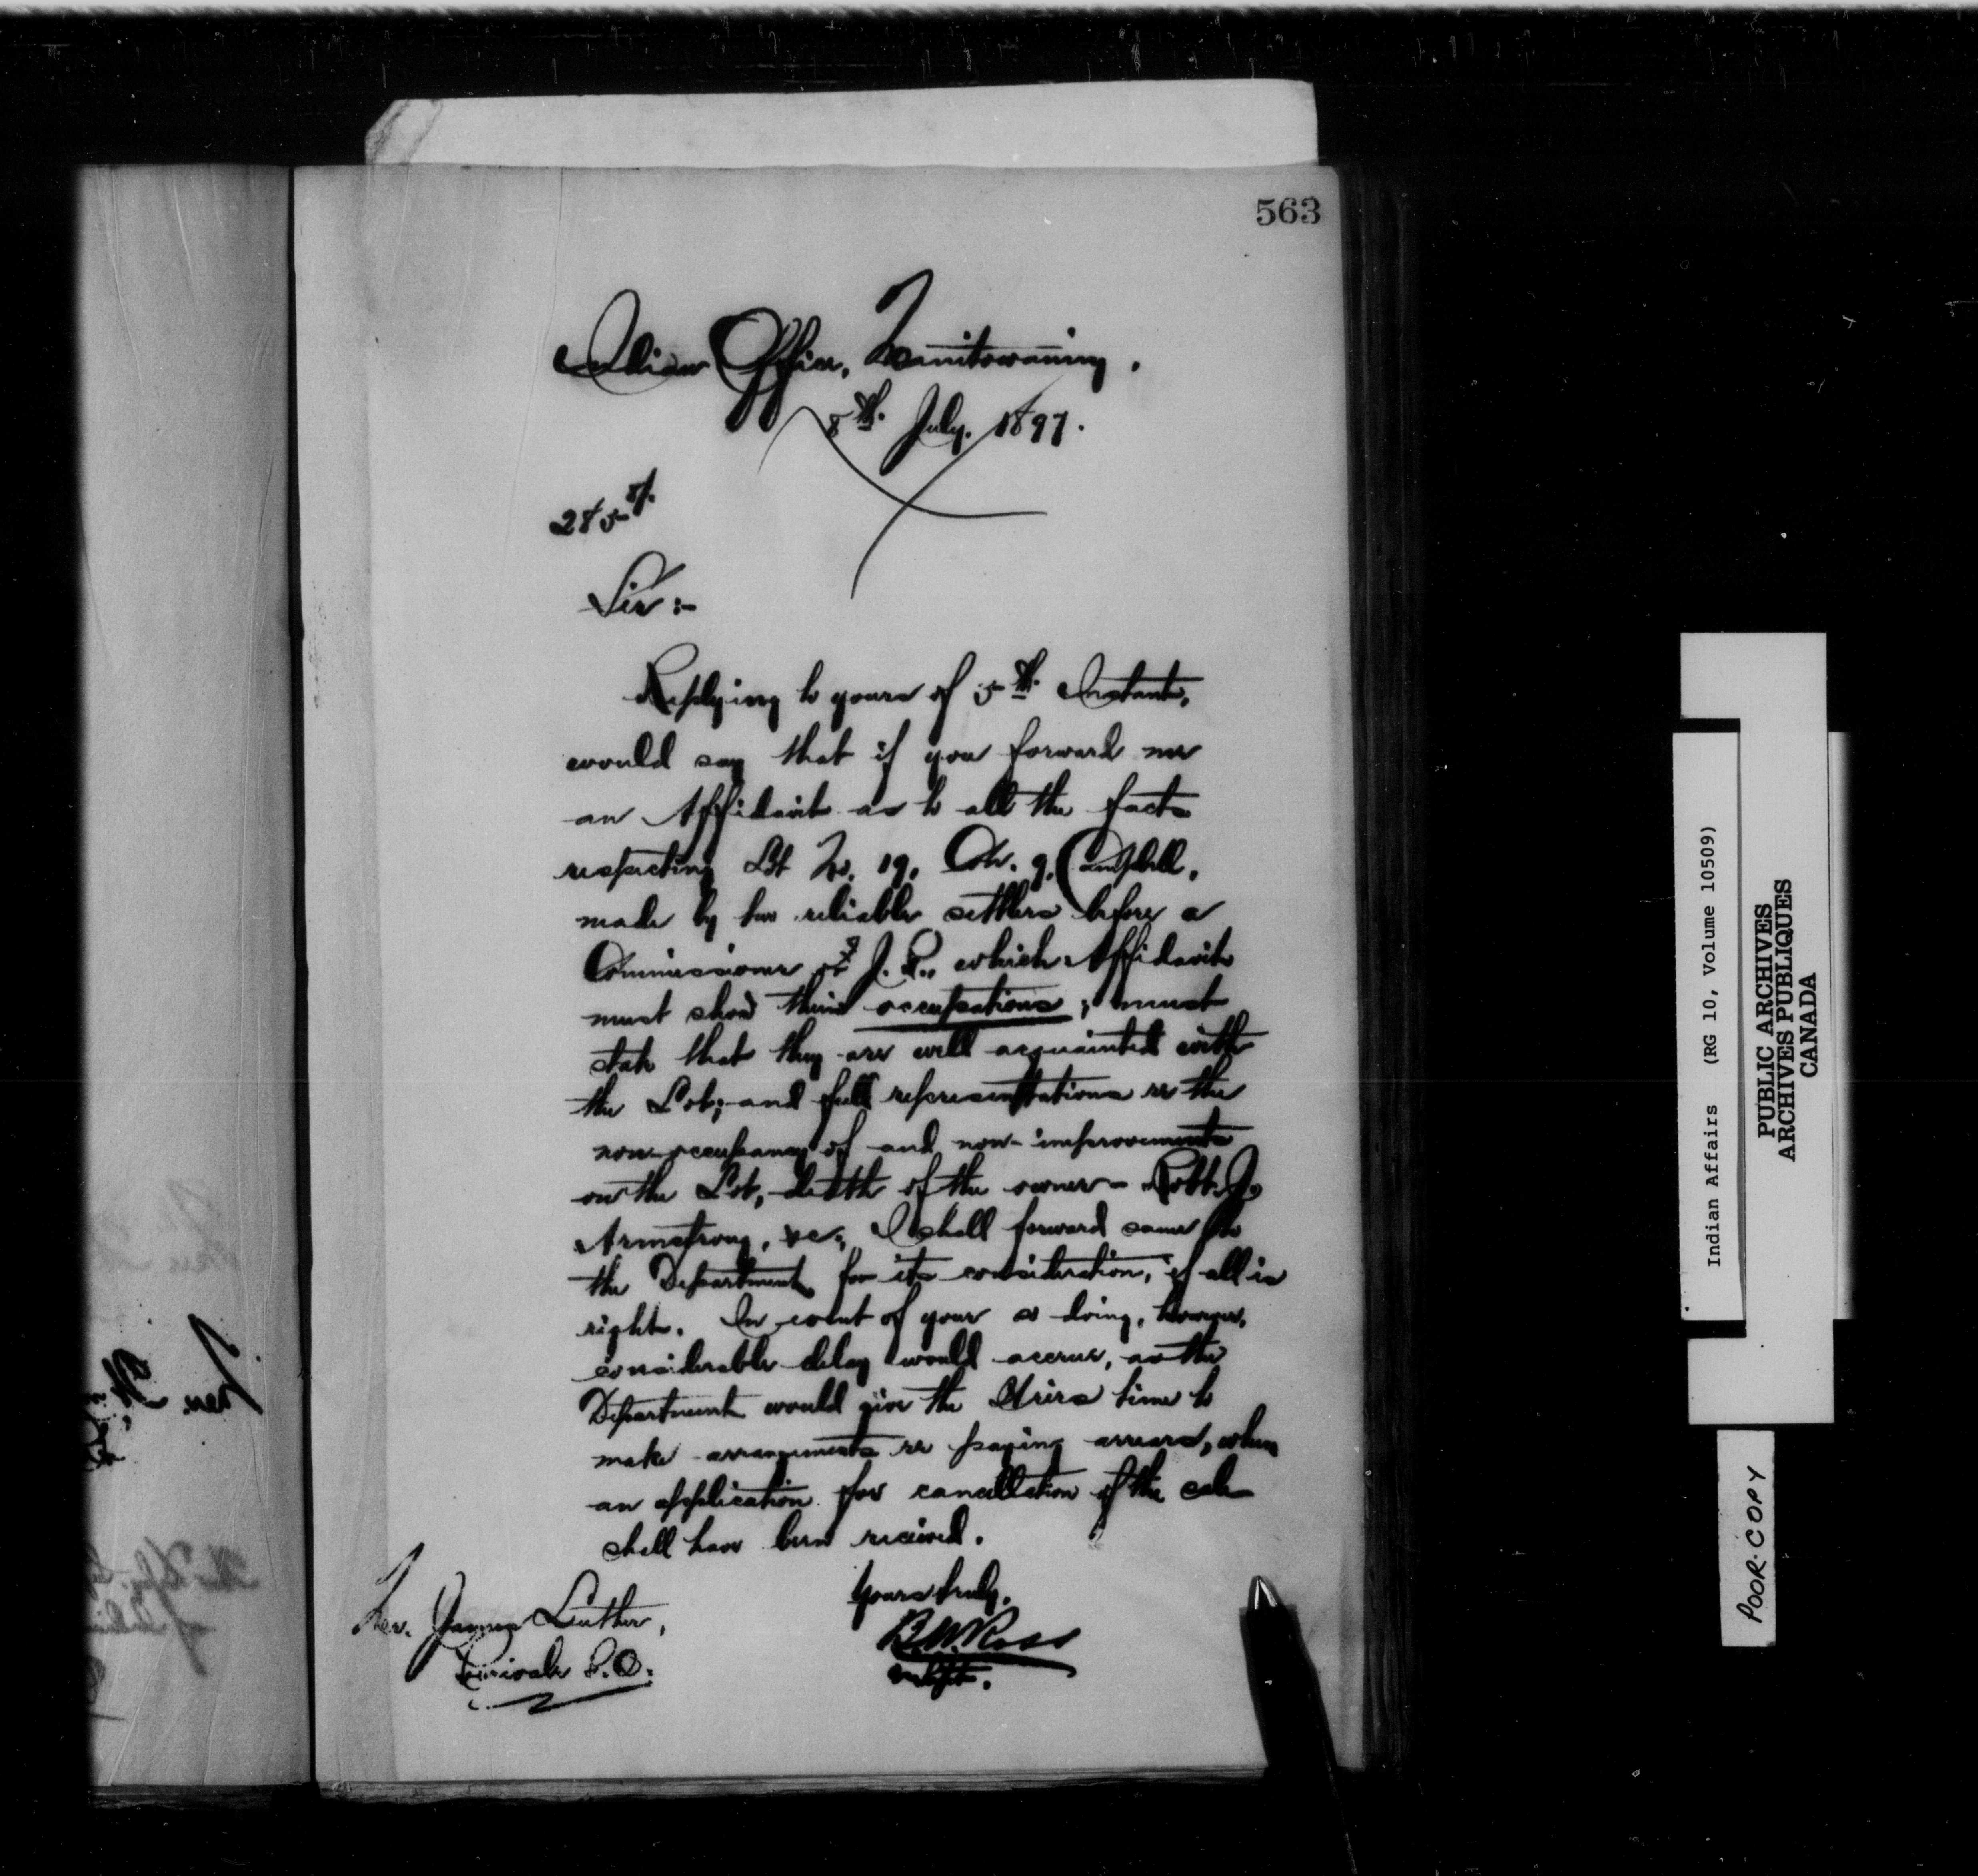 563
Indian Office, Manitowaning.
8th. July. 1897.
285-
Sir:-
Replying to yours of 5th. Instant,
would say that if you forward me
an Affidavit as to all the facts
respecting Lot No. 19, Con. 9, Campbell,
made by two reliable settlers before a
Commissioner or J. P., which Affidavit
must show their occupations; must
state that they are well acquainted with
the Lot; and full representations re the
non-occupancy of and non-improvements
on the Lot, death of the owner - Robt. J.
Armstrong, &c; I shall forward same to
the Department for its consideration, if all is
right. In event of your so doing, however,
considerable delay would accrue, as the
Department would give the Heirs time to
make arrangements re paying arrears, when
an application for cancellation of the sale
shall have been received.
Yours truly,
B.W. Ross
Rev. James Luther,
Perivale P.O.
Indian Affairs (RG 10, Volume 10509)
PUBLIC ARCHIVES
ARCHIVES PUBLIQUES
CANADA
POOR COPY